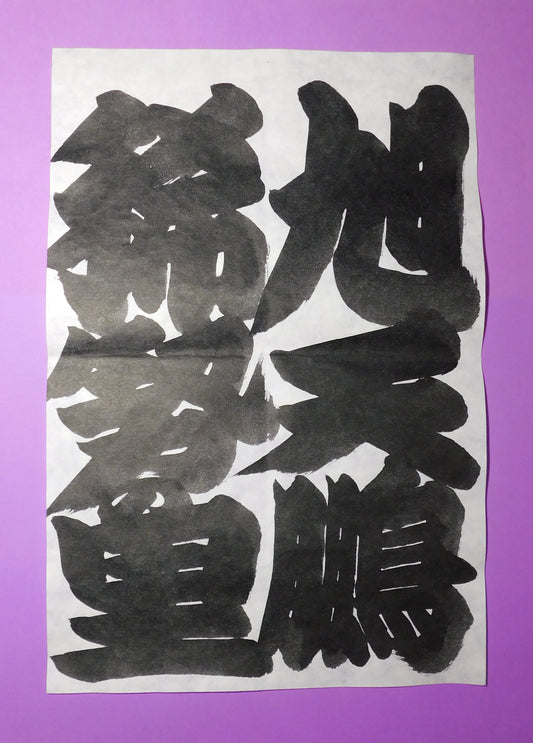 旭天鵬
稀勢の里